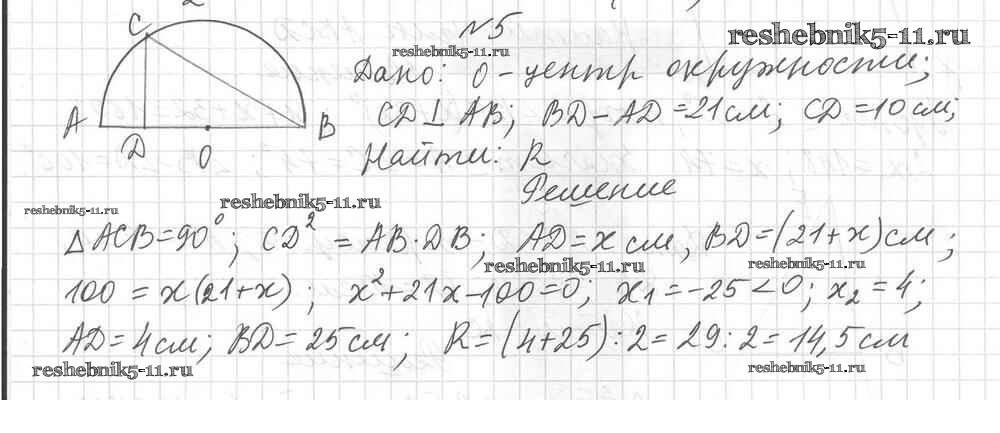 C
№5
reshebnik5-11.ru
reshebnik5-11.ru
Дано: О - центр окружности;
A
D
O
B
CD ⊥ AB; BD - AD = 21 см; CD = 10 см;
Найти: R
Решение
reshebnik5-11.ru
reshebnik5-11.ru
△ ACB = 90°; CD² = AB · DB; AD = x см, BD = (21 + x) см;
reshebnik5-11.ru
reshebnik5-11.ru
100 = x(21 + x); x² + 21x - 100 = 0; x₁ = -25 < 0; x₂ = 4;
AD = 4 см; BD = 25 см; R = (4 + 25) : 2 = 29 : 2 = 14,5 см
reshebnik5-11.ru
reshebnik5-11.ru